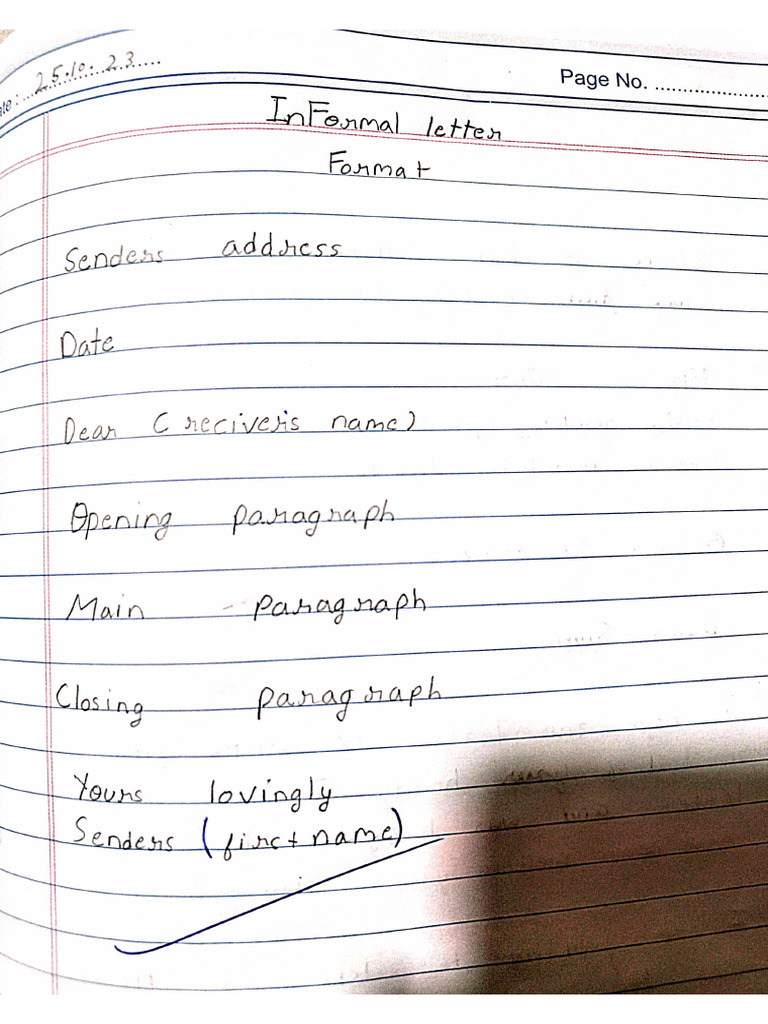 ate: 25.10.23
Page No.
InFormal letter
Format
Senders address
Date
Dear (reciver's name)
Opening paragraph
Main paragraph
Closing paragraph
Yours lovingly
Senders (first name)